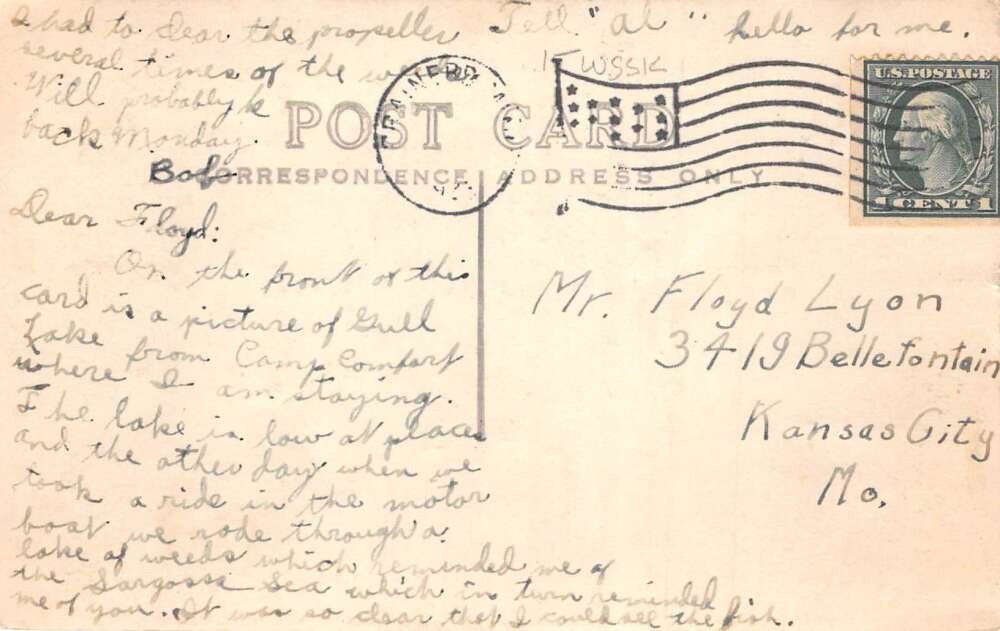 I had to clear the propeller
several times of the weeds
Will probably be
back Monday.
Bob
Tell "al" hello for me.
WSSIL
POST CARD
CORRESPONDENCE
ADDRESS ONLY
U.S. POSTAGE
1 CENT 1
Dear Floyd:
On the front of this
card is a picture of Gull
Lake from Camp Comfort
where I am staying.
The lake is low at places
and the other day when we
took a ride in the motor
boat we rode through a
lake of weeds which reminded me of
the Sargossa Sea which in turn reminded
me of you. It was so clear that I could see the fish.
Mr. Floyd Lyon
3419 Bellefontain
Kansas City
Mo.